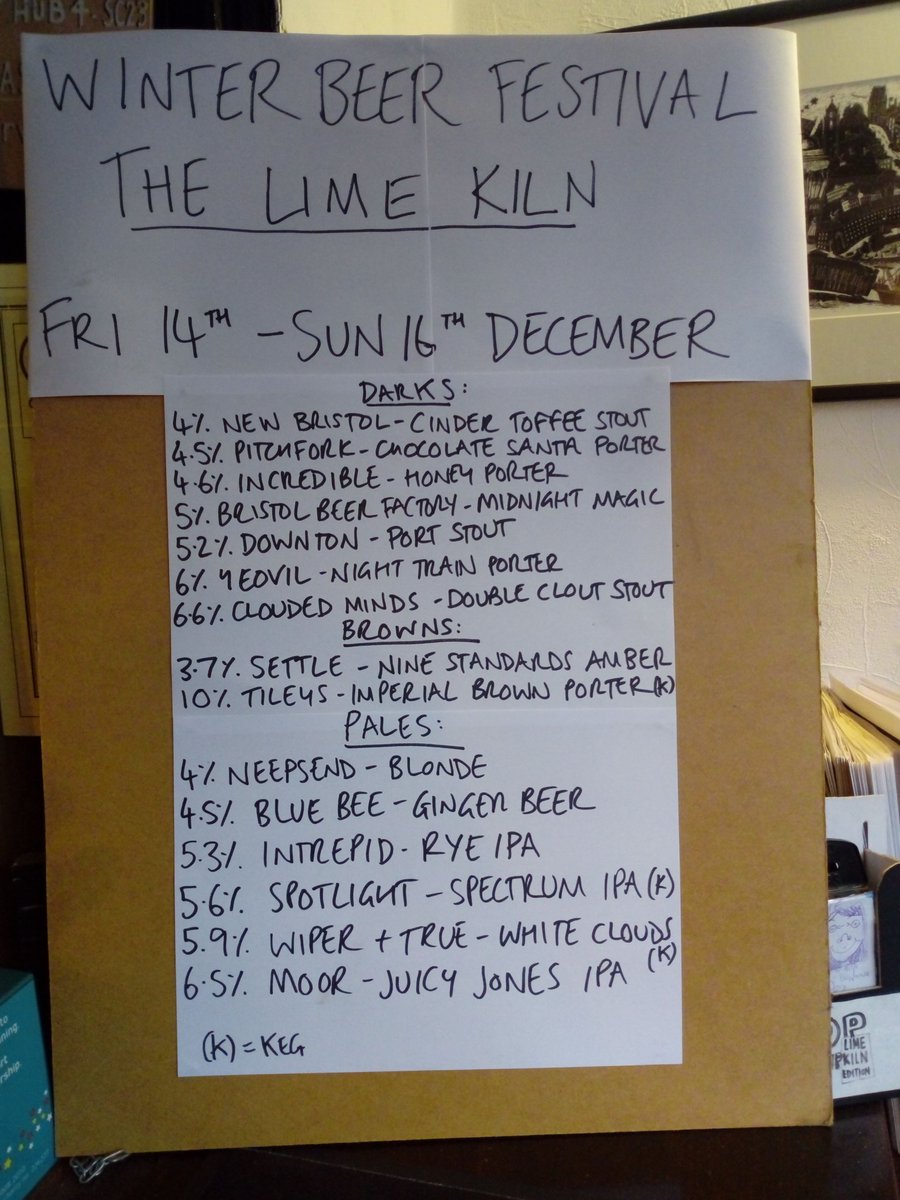 HUB 4 - SC23
WINTER BEER FESTIVAL
THE LIME KILN
FRI 14TH - SUN 16TH DECEMBER
DARKS:
4% NEW BRISTOL - CINDER TOFFEE STOUT
4.5% PITCHFORK - CHOCOLATE SANTA PORTER
4.6% INCREDIBLE - HONEY PORTER
5% BRISTOL BEER FACTORY - MIDNIGHT MAGIC
5.2% DOWNTON - PORT STOUT
6% YEOVIL - NIGHT TRAIN PORTER
6.6% CLOUDED MINDS - DOUBLE CLOUT STOUT
BROWNS:
3.7% SETTLE - NINE STANDARDS AMBER
10% TILEYS - IMPERIAL BROWN PORTER (K)
PALES:
4% NEEPSEND - BLONDE
4.5% BLUE BEE - GINGER BEER
5.3% INTREPID - RYE IPA
5.6% SPOTLIGHT - SPECTRUM IPA (K)
5.9% WIPER + TRUE - WHITE CLOUDS (K)
6.5% MOOR - JUICY JONES IPA
(K) = KEG
LIME
KILN
EDITION